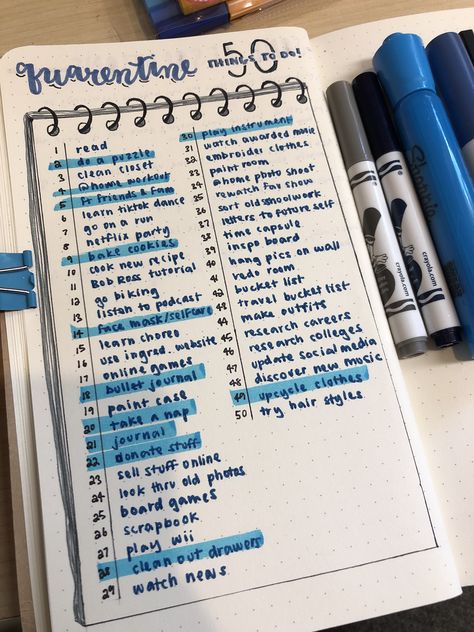 quarentine 50 THINGS TO DO!
1 read
2 do a puzzle
3 clean closet
4 @home workout
5 ft friends & fam
6 learn tiktok dance
7 go on a run
8 netflix party
9 bake cookies
10 cook new recipe
11 Bob Ross tutorial
12 go biking
13 listen to podcast
14 face mask/selfcare
15 learn choreo
16 use ingred. website
17 online games
18 bullet journal
19 paint case
20 take a nap
21 journal
22 donate stuff
23 sell stuff online
24 look thru old photos
25 board games
26 scrapbook
27 play wii
28 clean out drawers
29 watch news
30 play instrument
31 watch awarded movie
32 embroider clothes
33 paint room
34 @home photo shoot
35 rewatch fav show
36 sort old schoolwork
37 letters to future self
38 time capsule
39 inspo board
40 hang pics on wall
41 redo room
42 bucket list
43 travel bucket list
44 make outfits
45 research careers
46 research colleges
47 update social media
48 discover new music
49 upcycle clothes
50 try hair styles
crayola.com
crayola.com
Sharpie